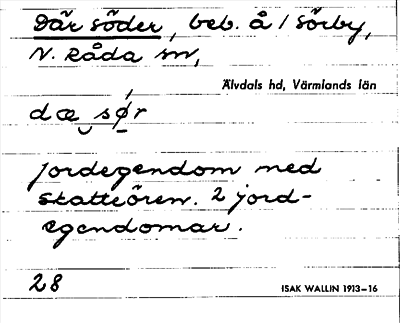 Där söder, beb. å / Sörby,
N. Råda sn,
Älvdals hd, Värmlands län
dæ sǿr
jordegendom med
skatteören. 2 jord-
egendomar.
28
ISAK WALLIN 1913–16